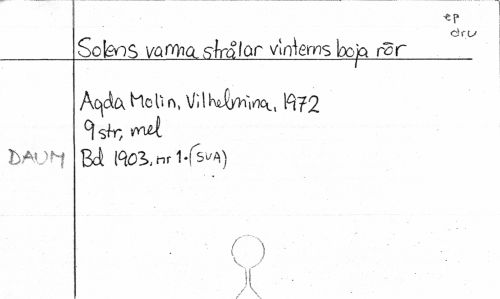 ep
dru
Solens varma strålar vinterns boja rör
Agda Molin, Vilhelmina, 1972
9 str, mel
DAUM Bd 1903, nr 1. (SVA)